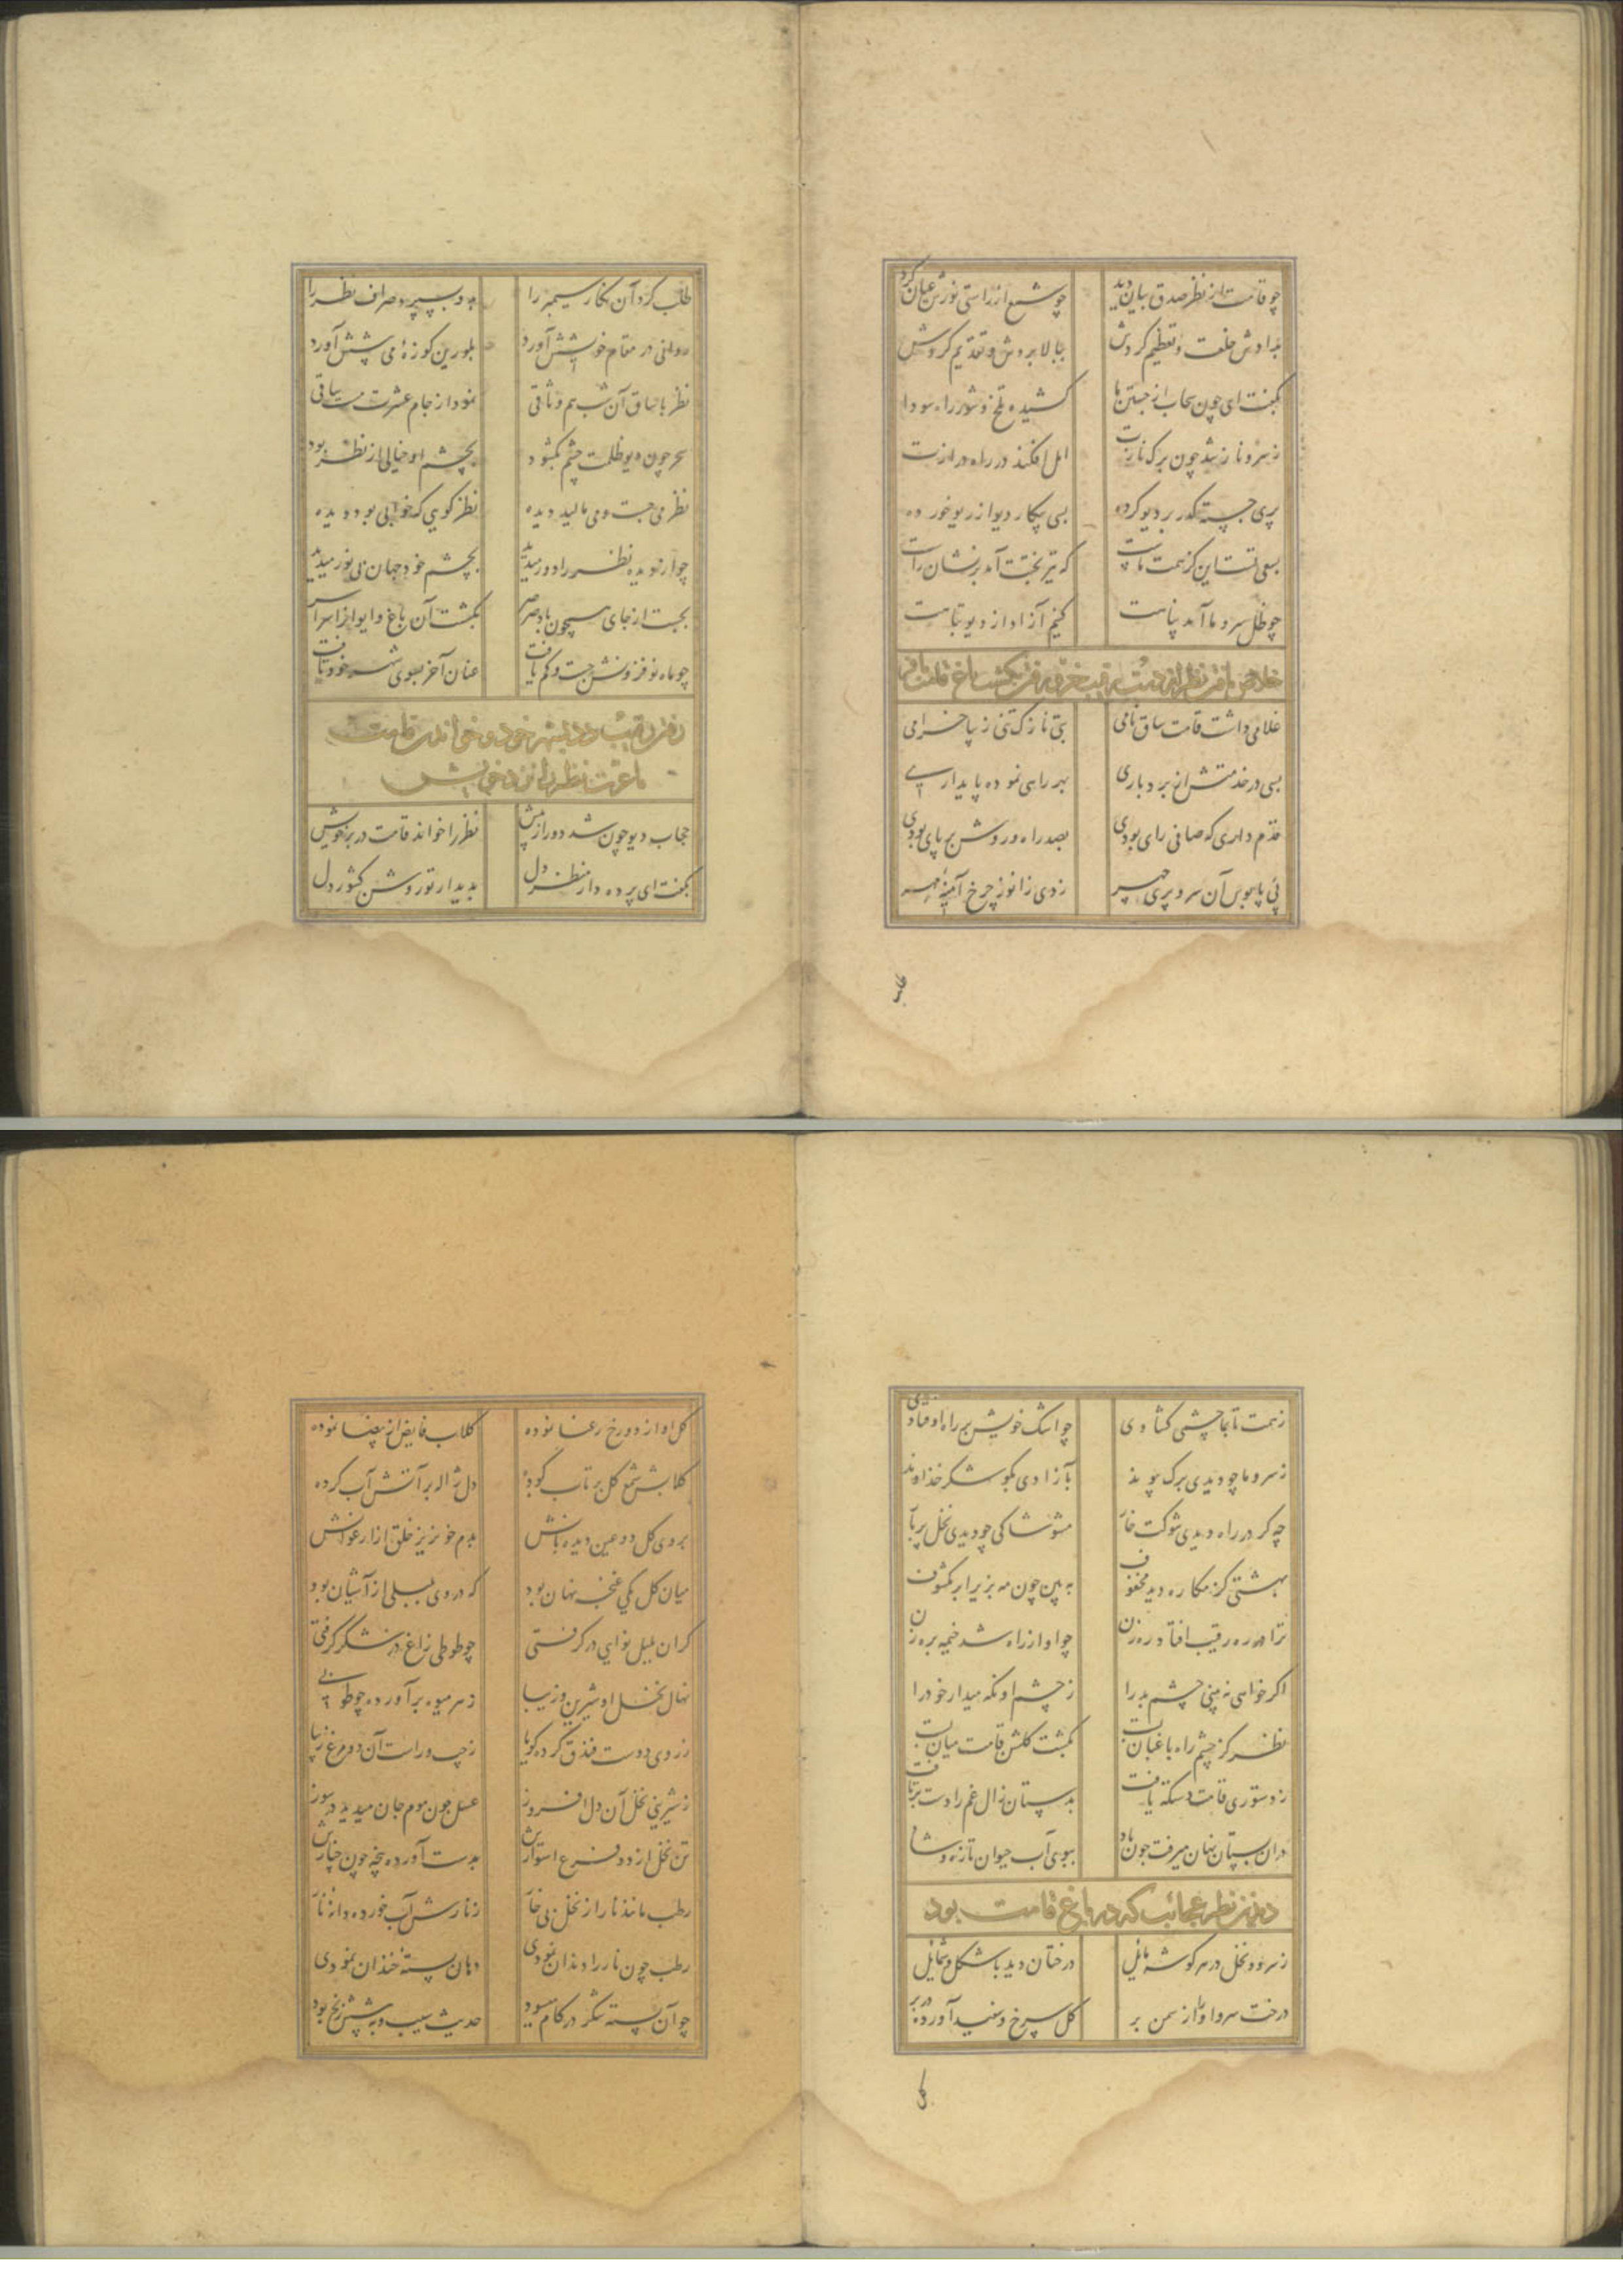 چو قامت از نظر صدق بیان دید چو شمع از راستی نورش عیان کرد
بدادش خلعت و تعظیم کردش ببالا بردش و تقدیم کردش
بگفت ای چون سحاب از جستن ما کشیده تلخ و شور راه سودا
ز سرو ناز شد چون برک نازت امل افکند در راه درازت
پری جسته گذر بر دیو کرده بسی پیکار دیو از ریو خورده
بسعی تست این کز همت ماست که تیر بختت آمد بر نشان راست
چو ظل سرو ما آمد پناهت کنیم آزاد از دیو تباهت
خلاص یافتن نظر از دست رقیب و رفتن بگشت باغ قامت
غلامی داشت قامت ساق نامی بتی نازک تنی زیبا خرامی
بسی در خدمتش از بردباری بهر راهی نموده پایداری
قدم داری که صافی رای بودی بصد راه و روش بر پای بودی
پی پابوس آن سرو پری چهر زدی زانو ز چرخ آینهٔ مهر
طلب
طلب کرد آن نگار سیمبر را بدو بسپرد صراف نظر را
روانی در مقام خویشش آورد بلورین کوزهٔ می پیشش آورد
نظر با ساق آن شب هم وثاقی نمود از جام عشرت مست ساقی
سحر چون دیو ظلمت چشم بگشود بچشم او خیالی از نظر بود
نظر می جست و می مالید دیده نظر گویی که خوابی بود دیده
چو از خود دیده نظر را دور میدید بچشم خود جهان بی نور میدید
بجست از جای همچون باد صرصر بگشت آن باغ و ایوان را سراسر
چو ماه نو فزونش جست و کم یافت عنان آخر بسوی شهر خود تافت
رفتن رقیب دد بشهر خود و خواندن قامت
باعزت نظر را نزد خویش
حجاب دیو چون شد دور از پیش نظر را خواند قامت در بر خویش
بگفت ای پرده دار منظر دل بدیدار تو روشن کشور دل
ز همت تا بجا چشمی گشادی چو اشک خویش بر راه اوفتادی
ز سرو ما چو دیدی برگ پیوند بآزادی بگو شکر خداوند
چه گر در راه دیدی شوکت خار مشو شاکی چو دیدی نخل پربار
بهشتی کز مکاره دید محفوف ببین چون مه بزیر ابر مکشوف
ترا در ره رقیب افتاد رهزن چو او از راه شد خیمه بره زن
اگر خواهی نه بینی چشم بد را ز چشم او نگه میدار خود را
نظر کز چشم راه باغبان بست بگشت گلشن قامت میان بست
ز دستوری قامت دستگه یافت بدستان زال غم را دست برتافت
در آن بستان نهان میرفت چون باد ببوی آب حیوان تازه و شاد
دیدن نظر عجائب که در باغ قامت بود
ز سرو و نخل در هر گوشه مایل درختان دید با شکل و شمایل
درخت سرو او از سمن بر گل سرخ و سفید آورده در بر
گل
گل او از دو رخ رعنا نموده گلاب فایض از بیضا نموده
گلابش شمع گل بر تاب کرده دل ژاله بر آتش آب کرده
بروی گل دو عین دیده بانش بدم خونریز خلق از ارغوانش
میان گل یکی غنچه نهان بود که در وی بلبلی از آشیان بود
گر آن بلبل نوایی در گرفتی چو طوطی زاغ در شکر گرفتی
نهال نخل او شیرین و زیبا ز سر میوه برآورده چو طوبی
ز روی دوست فندق کرده گویا ز چپ و راست آن دو مرغ زیبا
ز شیرینی نخل آن دل افروز عسل چون موم جان میدید در سوز
تن نخل از دو فرع استوارش بدست آورده پنجه چون چنارش
رطب مانند نار از نخل بی خار ز نارش آب خورده دانه نار
رطب چون نار را دندان نمودی دهان پستهٔ خندان نمودی
چو آن پسته شکر در کام میسود حدیث سیب و به پیشش زنخ بود